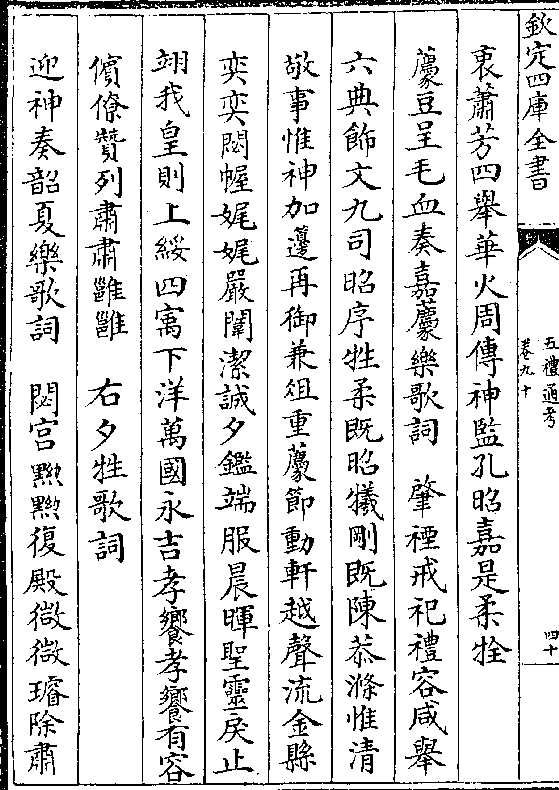 欽定四庫全書
五禮通考
卷九十
四十
衷蕭芳四舉華火周傳神監孔昭嘉是柔牷
薦豆呈毛血奏嘉薦樂歌詞　肇禋戒祀禮容咸舉
六典飾文九司昭序牲柔既昭犧剛既陳恭滌惟清
敬事惟神加籩再御兼俎重薦節動軒越聲流金縣
奕奕閟幄娓娓嚴闈潔誠夕鑑端服晨暉聖靈戾止
翊我皇則上綏四寓下洋萬國永吉孝饗孝饗有容
儐僚贊列肅肅雝雝　右夕牲歌詞
迎神奏韶夏樂歌詞　閟宮黝黝復殿微微璿除肅